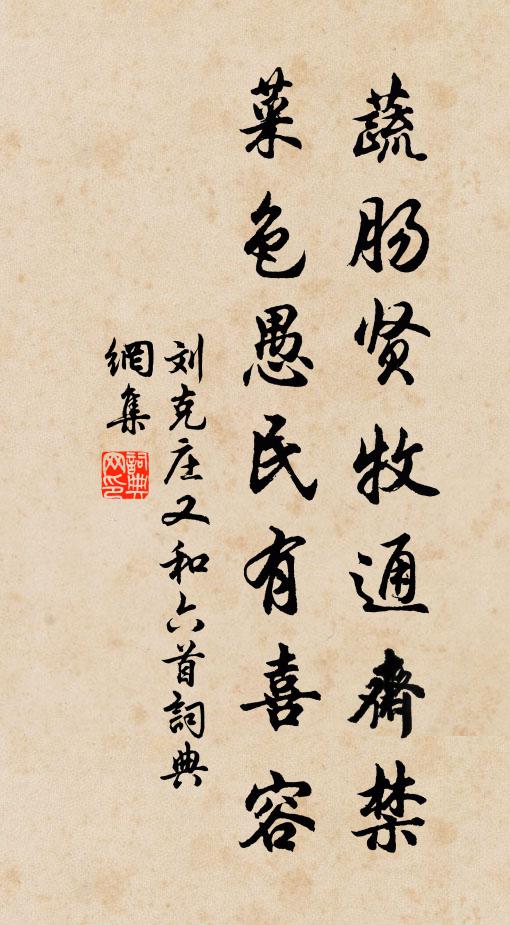 蔬肠贤牧通齋禁
菜色愚民有喜容
刘克庄又和六首詞典
網集
詞典
网印